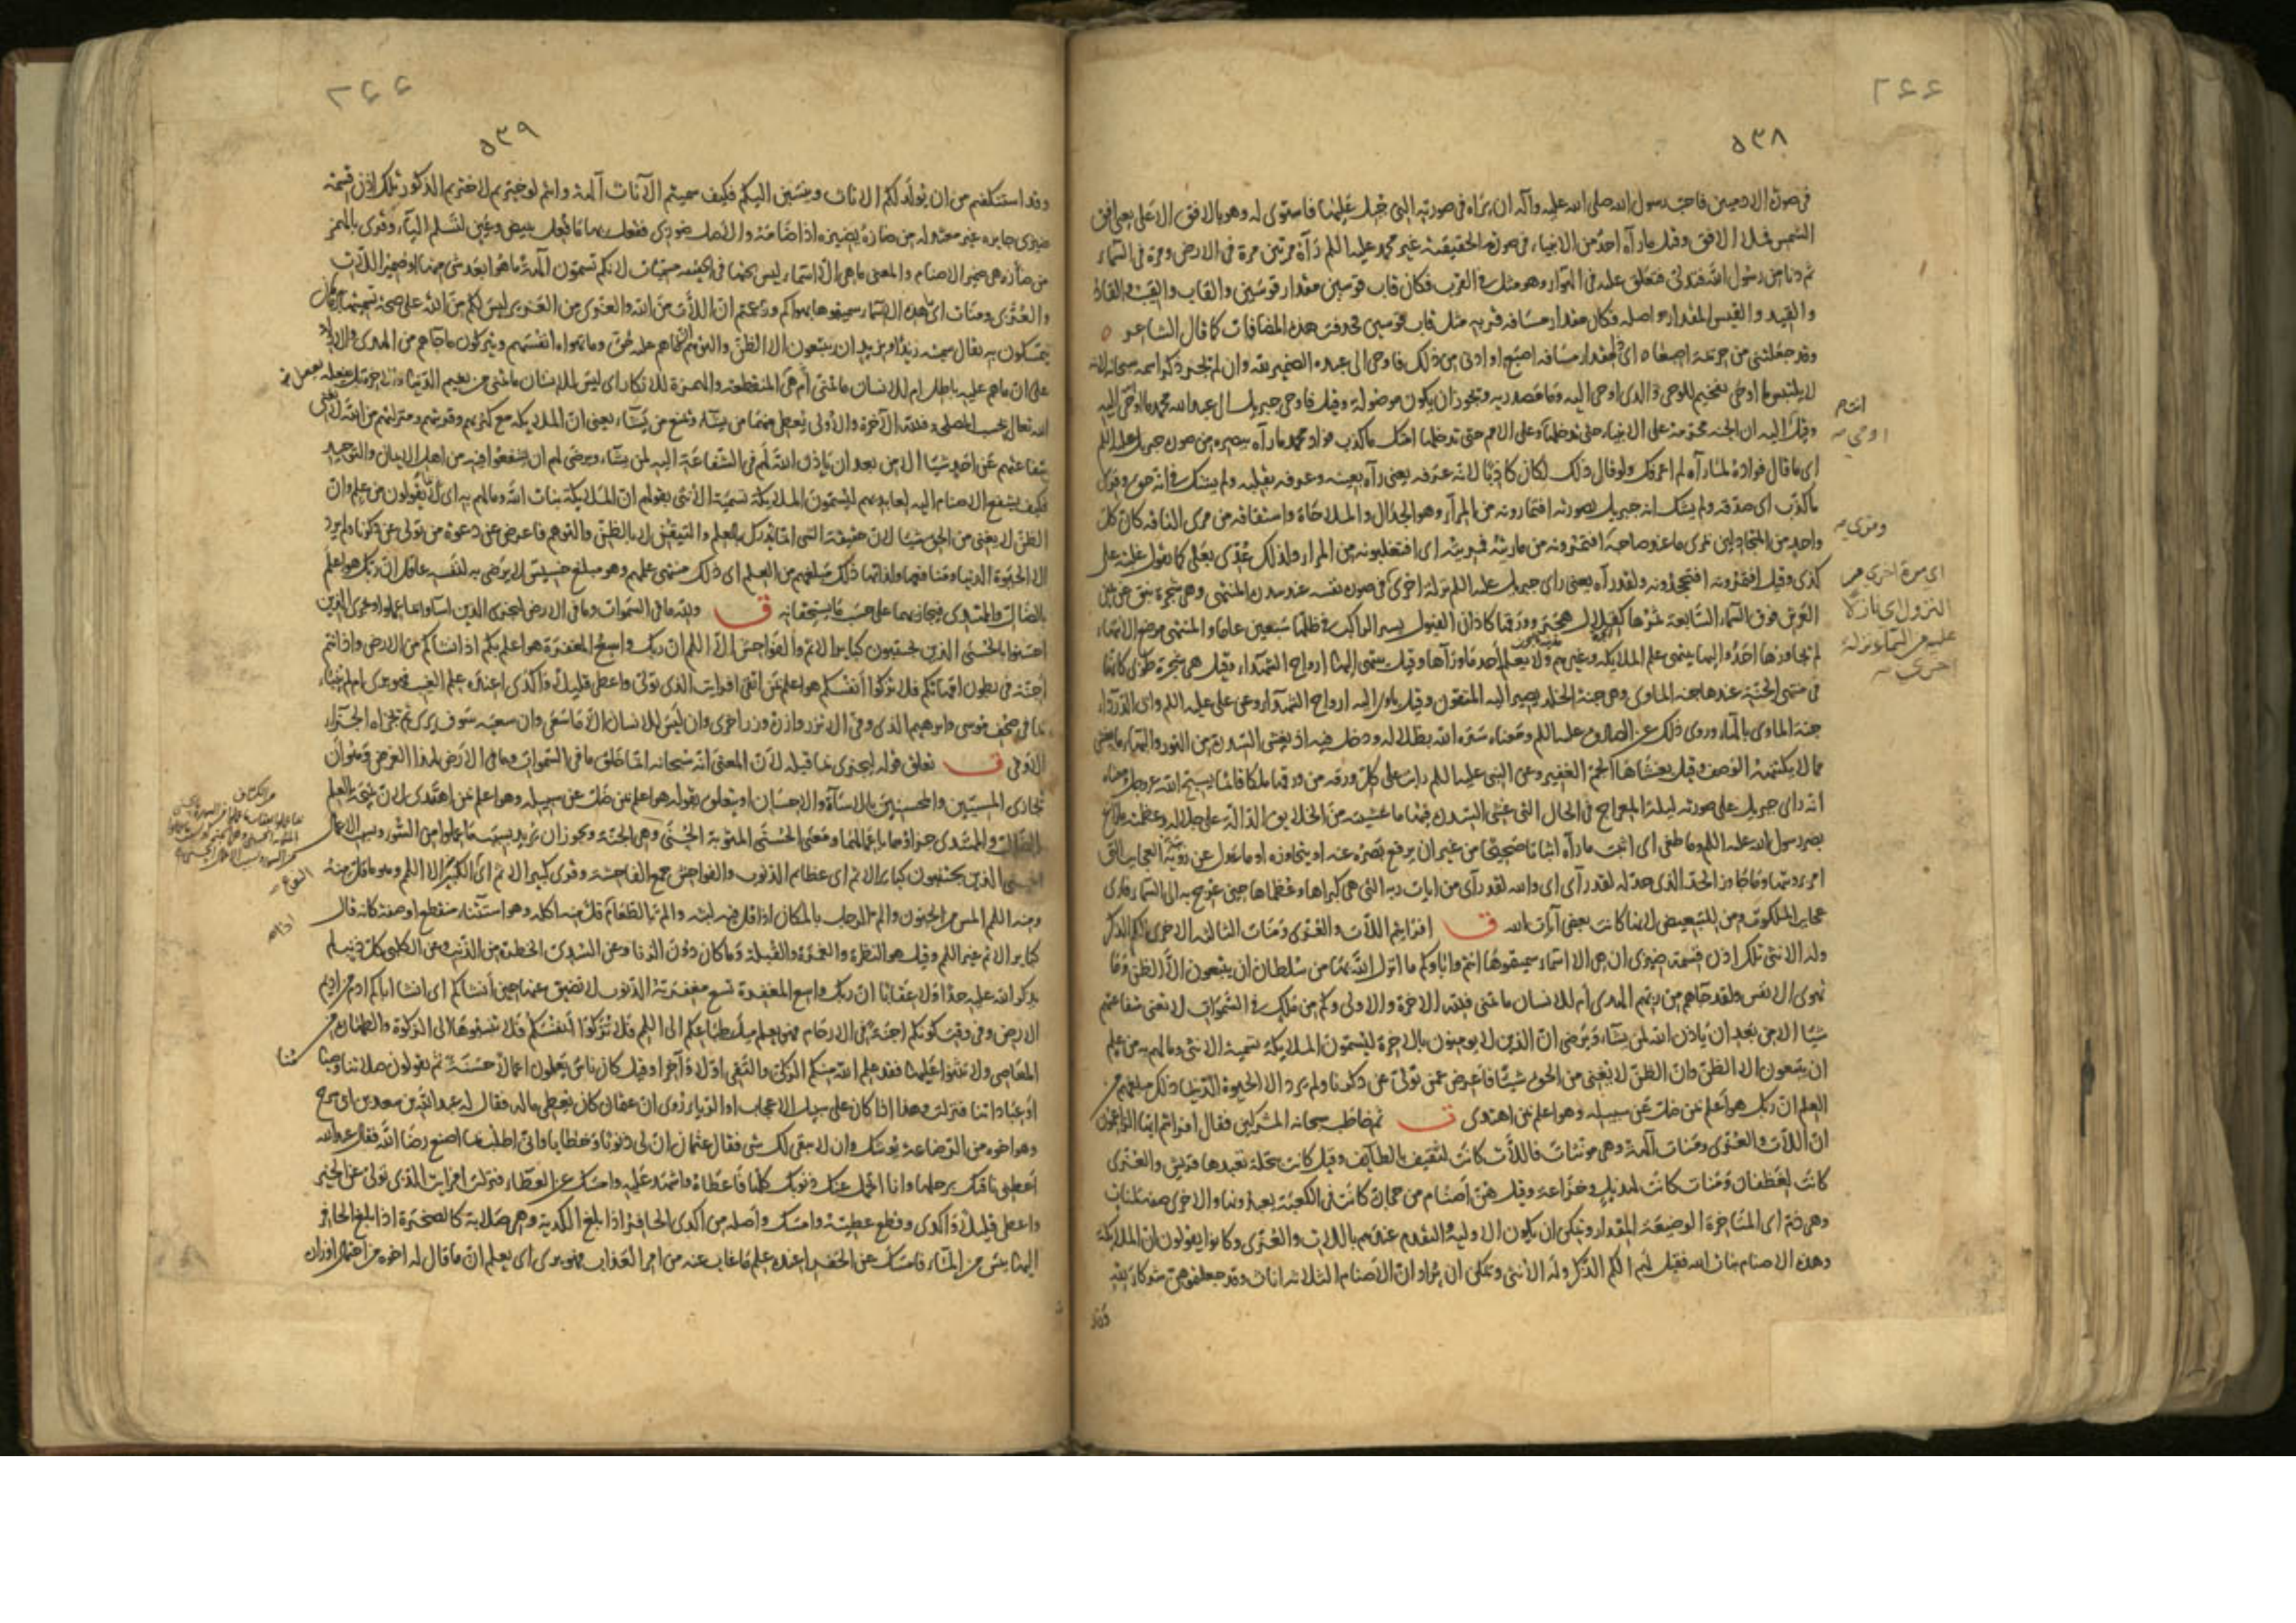 ٥٣٨
في صورة الادميين فاحب رسول الله صلى الله عليه وآله ان يراه في صورته التي جبل عليها فاستوى له وهو بالافق الاعلى يعني افق
الشمس فملا الافق وقيل ما رآه احد من الانبياء في صورته الحقيقية غير محمد عليه السلم رآه مرتين مرة في الارض ومرة في السماء
ثم دنا من رسول الله فتدلى فتعلق عليه في الهواء وهو مثل في القرب فكان قاب قوسين مقدار قوسين والقاب والقيب والقاد
والقيد والقيس المقدار واصله فكان مقدار مسافة قربه مثل قاب قوسين فحذفت هذه المضافات كما قال الشاعر
وقد جعلتني من حزيمة اصبعا اي ذا مقدار مسافة اصبع او ادنى من ذلك فاوحى الى عبده الضمير لله وان لم يجر ذكر اسمه سبحانه لانه
لا يلتبس ما اوحى تفخيم للوحي الذي اوحى اليه وما مصدرية ويجوز ان يكون موصولة وقيل فاوحى جبريل الى عبد الله محمد ما اوحى اليه
وقيل اليه ان الجنة محرمة على الانبياء حتى تدخلها وعلى الامم حتى تدخلها امتك ما كذب فؤاد محمد ما رآه ببصره من صورة جبريل عليه السلم
اي ما قال فؤاده لما رآه لم اعرفك ولو قال ذلك لكان كاذبا لانه عرفه يعني رآه بعينه وعرفه بقلبه ولم يشك في انه حق وقرئ
ما كذب اي صدقه ولم يشك انه جبريل بصورته افتمارونه من المراء وهو الجدال والملاحاة واشتقاقه من مري الناقة كان كل
واحد من المتجادلين يمري ما عند صاحبه افتمرونه من ماريته فمريته اي افتغلبونه من المراء ولذلك عدي بعلى كما تقول غلبته على
كذى وقيل افتمرونه افتجحدونه ولقد رآه يعني راى جبريل عليه السلم نزلة اخرى في صورة نفسه عند سدرة المنتهى وهي شجرة نبق عن يمين
العرش فوق السماء السابعة ثمرها كقلال هجر وورقها كآذان الفيول يسير الراكب في ظلها سبعين عاما والمنتهى موضع الانتهاء
لم يجاوزها احد واليها ينتهي علم الملايكة وغيرهم ولا يعلم احد ما وراءها وقيل ينتهي اليها ارواح الشهداء وقيل هي شجرة طوبى كانها
في منتهى الجنة عندها جنة الماوى وهي جنة الخلد يصير اليه المتقون وقيل ياوي اليه ارواح الشهداء وعن علي عليه السلم وابي الدرداء
جنة الماوى بالهاء وروي ذلك عن الصادق عليه السلم ومعناه ستره الله بظلاله ودخل فيه اذ يغشى السدرة من النور والبهاء ما يغشى
مما لا يكتنهه الوصف وقيل يغشاها الجم الغفير وعن النبي عليه السلم رايت على كل ورقة من ورقها ملكا قائما يسبح الله عز وجل ومعناه
انه راى جبريل على صورته ليلة المعراج في الحال التي غشي السدرة فيها ما غشيت من الخلايق الدالة على جلاله وعظمته ما زاغ
بصر رسول الله عليه السلم وما طغى اي اثبت ما رآه اثباتا صحيحا من غير ان يرفع بصره عنه او يتجاوزه او ما عدل عن رؤية العجايب التي
امر برؤيتها وما جاوز الحد الذي حد له لقد رآى اي والله لقد رآى من ايات ربه التي هي كبراها وعظماها حين عرج به الى السماء فاري
عجايب الملكوت ومن للتبعيض لانها كانت بعض آيات الله ق افرايتم اللات والعزى ومناة الثالثة الاخرى الكم الذكر
وله الانثى تلك اذن قسمة ضيزى ان هي الا اسماء سميتموها انتم واباؤكم ما انزل الله بها من سلطان ان يتبعون الا الظن وما
تهوى الانفس ولقد جاءهم من ربهم الهدى ام للانسان ما تمنى فلله الاخرة والاولى وكم من ملك في السموات لا تغني شفاعتهم
شيئا الا من بعد ان ياذن الله لمن يشاء ويرضى ان الذين لا يومنون بالاخرة ليسمون الملايكة تسمية الانثى وما لهم به من علم
ان يتبعون الا الظن وان الظن لا يغني من الحق شيئا فاعرض عن من تولى عن ذكرنا ولم يرد الا الحيوة الدنيا ذلك مبلغهم من
العلم ان ربك هو اعلم بمن ضل عن سبيله وهو اعلم بمن اهتدى ق ثم خاطب سبحانه المشركين فقال افرايتم ايها الزاعمون
ان اللات والعزى ومنات آلهة وهي مؤنثات فاللات كانت لثقيف بالطايف وقيل كانت بنخلة تعبدها قريش والعزى
كانت لغطفان ومنات كانت لهذيل وخزاعة وقيل هن اصنام من حجارة كانت في الكعبة يعبدونها والاخرى صفة لمنات
وهي ذم اي المتاخرة الوضيعة المقدار ويمكن ان يكون الاولية والتقدم عندهم باللات والعزى وكانوا يقولون ان الملائكة
وهذه الاصنام بنات الله فقيل لهم الكم الذكر وله الانثى ويمكن ان يراد ان الاصنام الثلاثة اناث وقد جعلتموهن شركاء لله
وقد
انتم
اوحي
ومري
اي مرة اخرى من
النزول اي نازلا
عليه من السماء نزلة
اخرى
٥٣٩
وقد استنكفتم من ان يولد لكم الاناث وينسبن اليكم فكيف سميتم الاناث آلهة وانتم لو خيرتم لاخترتم الذكور تلك اذن قسمة
ضيزى جايرة غير معتدلة من ضازه يضيزه اذا ضامه والاصل ضوزى ففعل بها ما فعل ببيض وعين لتسلم الياء وقرئ بالهمز
من ضأزه هي ضمير الاصنام والمعنى ما هي الا اسماء ليس تحتها في الحقيقة مسميات لانكم تسمون آلهة ما هو ابعد شئ منها او ضمير اللات
والعزى ومنات اي هذه الاسماء سميتموها بهواكم وزعمتم ان اللات من الله والعزى من العزيز ليس لكم من الله على صحة تسميتها برهان
يتمسكون به يقال سميته زيدا او بزيد ان يتبعون الا الظن والتوهم ان ما هم عليه حق وما تهواه انفسهم ويتركون ما جاهم من الهدى والادلة
على ان ما هم عليه باطل ام للانسان ما تمنى ام هي المنقطعة والهمزة للانكار اي ليس للانسان ما تمنى من نعيم الدنيا والاخرة بل يفعله
الله تعالى بحسب المصلحة فلله الآخرة والاولى يعطي منهما من يشاء ويمنع من يشاء يعني ان الملايكة مع كثرتهم وقربتهم ومنزلتهم من الله لا تغني
شفاعتهم عن احد شيئا الا من بعد ان ياذن الله لهم في الشفاعة اليه لمن يشاء ويرضى لهم ان يشفعوا فيه من اهل الايمان والتوحيد
فكيف يشفع الاصنام اليه لعابديهم ليسمون الملايكة تسمية الانثى بقولهم ان الملايكة بنات الله وما لهم به اي بما يقولون من علم وان
الظن لا يغني من الحق شيئا لان حقيقة الشي انما يدرك بالعلم والتيقن لا بالظن والتوهم فاعرض عن دعوة من تولى عن ذكرنا ولم يرد
الا الحيوة الدنيا ومنافعها ولذاتها ذلك مبلغهم من العلم اي ذلك منتهى علمهم وهو مبلغ خسيس لا يرضى به لنفسه عاقل ان ربك هو اعلم
بالضال والمهتدي فيجازيهما على حسب ما يستحقانه ق ولله ما في السموات وما في الارض ليجزي الذين اساؤا بما عملوا ويجزي الذين
احسنوا بالحسنى الذين يجتنبون كباير الاثم والفواحش الا اللمم ان ربك واسع المغفرة هو اعلم بكم اذ انشاكم من الارض واذ انتم
اجنة في بطون امهاتكم فلا تزكوا انفسكم هو اعلم بمن اتقى افرايت الذي تولى واعطى قليلا واكدى اعنده علم الغيب فهو يرى ام لم ينبأ
بما في صحف موسى وابراهيم الذي وفى الا تزر وازرة وزر اخرى وان ليس للانسان الا ما سعى وان سعيه سوف يرى ثم يجزاه الجزاء
الاوفى ق تعلق قوله ليجزي بما قبله لان المعنى انه سبحانه انما خلق ما في السموات وما في الارض لهذا الغرض وهو ان
يجازي المسيئين والمحسنين بالاساءة والاحسان او يتعلق بقوله هو اعلم بمن ضل عن سبيله وهو اعلم بمن اهتدى لان نتيجة العلم
بالضال والمهتدي جزاؤهما باعمالهما ومعنى الحسنى المثوبة الحسنى وهي الجنة ويجوز ان يريد بسبب ما عملوا من السوء وبسبب الاعمال
الحسنى الذين يجتنبون كباير الاثم اي عظايم الذنوب والفواحش جمع الفاحشة وقرئ كبير الاثم اي الكبير الا اللمم وهو ما قل منه
ومنه اللمم المس من الجنون والم الرجل بالمكان اذا قل فيه لبثه والم بالطعام قل منه اكله وهو استثناء منقطع او صفة كانه قال
كباير الاثم غير اللمم وقيل هو النظرة والغمزة والقبلة وما كان دون الزنا وعن السدي الخطرة من الذنب وعن الكلبي كل ذنب لم
يذكر الله عليه حدا ولا عقابا ان ربك واسع المغفرة تسع مغفرته الذنوب لا تضيق عنها حين انشاكم اي انشا اباكم ادم من اديم
الارض وفي وقت كونكم اجنة في الارحام فهو يعلم ميل طباعكم الى اللمم فلا تزكوا انفسكم فلا تنسبوها الى الزكوة والطهارة من
المعاصي ولا تثنوا عليها فقد علم الله منكم الزكي والتقي اولا وآخرا وقيل كان ناس يعملون اعمالا حسنة ثم يقولون صلاتنا وصيامنا
او عباداتنا فنزلت وهذا اذا كان على سبيل الاعجاب او الرياء وروي ان عثمان كان يعطي ماله فقال له عبد الله بن سعد بن ابي سرح
وهو اخوه من الرضاعة يوشك ان لا يبقى لك شئ فقال عثمان ان لي ذنوبا وخطايا واني اطلب بما اصنع رضا الله فقال عبد الله
اعطني ناقتك برحلها وانا اتحمل عنك ذنوبك كلها فاعطاه واشهد عليه وامسك عن العطاء فنزلت افرايت الذي تولى عن الخير
واعطى قليلا واكدى وقطع عطيته وامسك واصله من اكدى الحافر اذا بلغ الكدية وهي صلابة كالصخرة اذا بلغ الحافر
اليها يئس من الماء فامسك عن الحفر اعنده علم ما غاب عنه من امر العذاب فهو يرى اي يعلم ان ما قال له اخوه من احتمال اوزاره